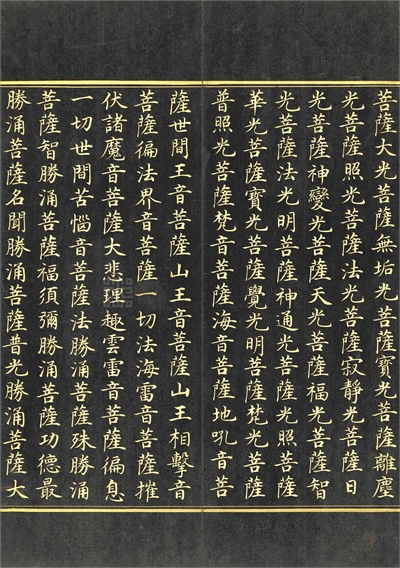 菩薩大光菩薩無垢光菩薩寶光菩薩離塵
光菩薩照光菩薩法光菩薩寂靜光菩薩日
光菩薩神變光菩薩天光菩薩福光菩薩智
光菩薩法光明菩薩神通光菩薩光照菩薩
華光菩薩寶光菩薩覺光明菩薩梵光菩薩
普照光菩薩梵音菩薩海音菩薩地吼音菩
薩世間王音菩薩山王音菩薩山王相擊音
菩薩徧法界音菩薩一切法海雷音菩薩摧
伏諸魔音菩薩大悲理趣雲雷音菩薩徧息
一切世間苦惱音菩薩法勝涌菩薩殊勝涌
菩薩智勝涌菩薩福須彌勝涌菩薩功德最
勝涌菩薩名聞勝涌菩薩普光勝涌菩薩大